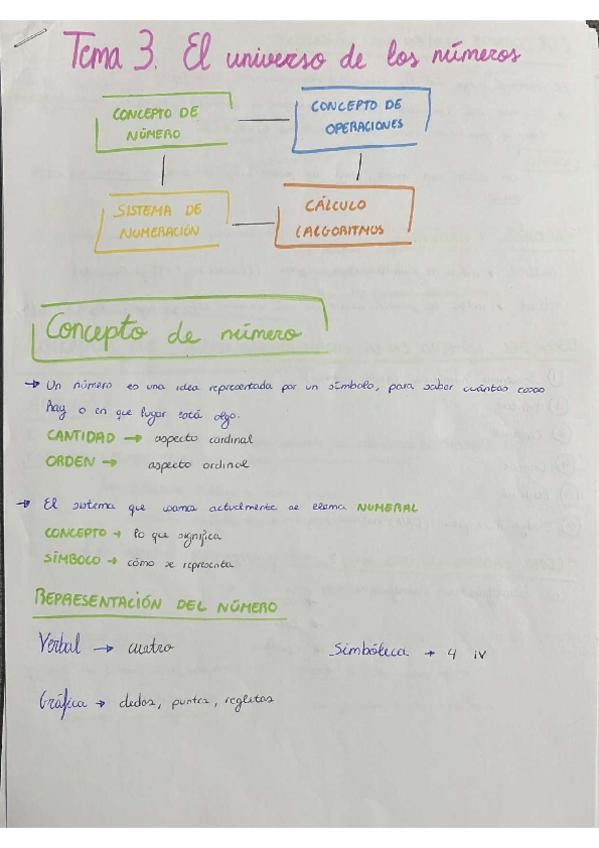 Tema 3. El universo de los números
CONCEPTO DE
NÚMERO
CONCEPTO DE
OPERACIONES
SISTEMA DE
NUMERACIÓN
CÁLCULO
(ALGORITMOS
Concepto de número
→ Un número es una idea representada por un símbolo, para saber cuántas cosas
hay o en que lugar está algo.
CANTIDAD → aspecto cardinal
ORDEN → aspecto ordinal
→ El sistema que usamos actualmente se llama NUMERAL
CONCEPTO → lo que significa
SÍMBOLO → cómo se representa
REPRESENTACIÓN DEL NÚMERO
Verbal → cuatro
Simbólica → 4 iV
Gráfica → dedos, puntos, regletas